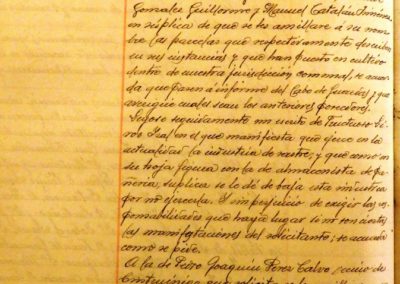 Gonzalez Guillermo y Manuel Catalán Jimeno
en súplica de que se les amillare a su nom
bre las parcelas que respectivamente descubren
en sus instancias y que han puesto en cultivo
dentro de nuestra jurisdicción comunal, se acuer
da que pasen a informe del Cabo de Guardas, y que
averigüe cuales sean los anteriores poseedores.
Leyose seguidamente un escrito de
en el que manifiesta que ejerce en la
actualidad la industria de sastre, y que como en
su hoja figura con la de almacenista de
suplica se le de de baja esta industria
por no ejercerla. Y sin perjuicio de exigir las res
ponsabilidades que haya lugar si no son ciertas
las manifestaciones del solicitante; se acuerda
como se pide.
A la de Pedro Joaquín Perez Calvo, vecino de
que solicita